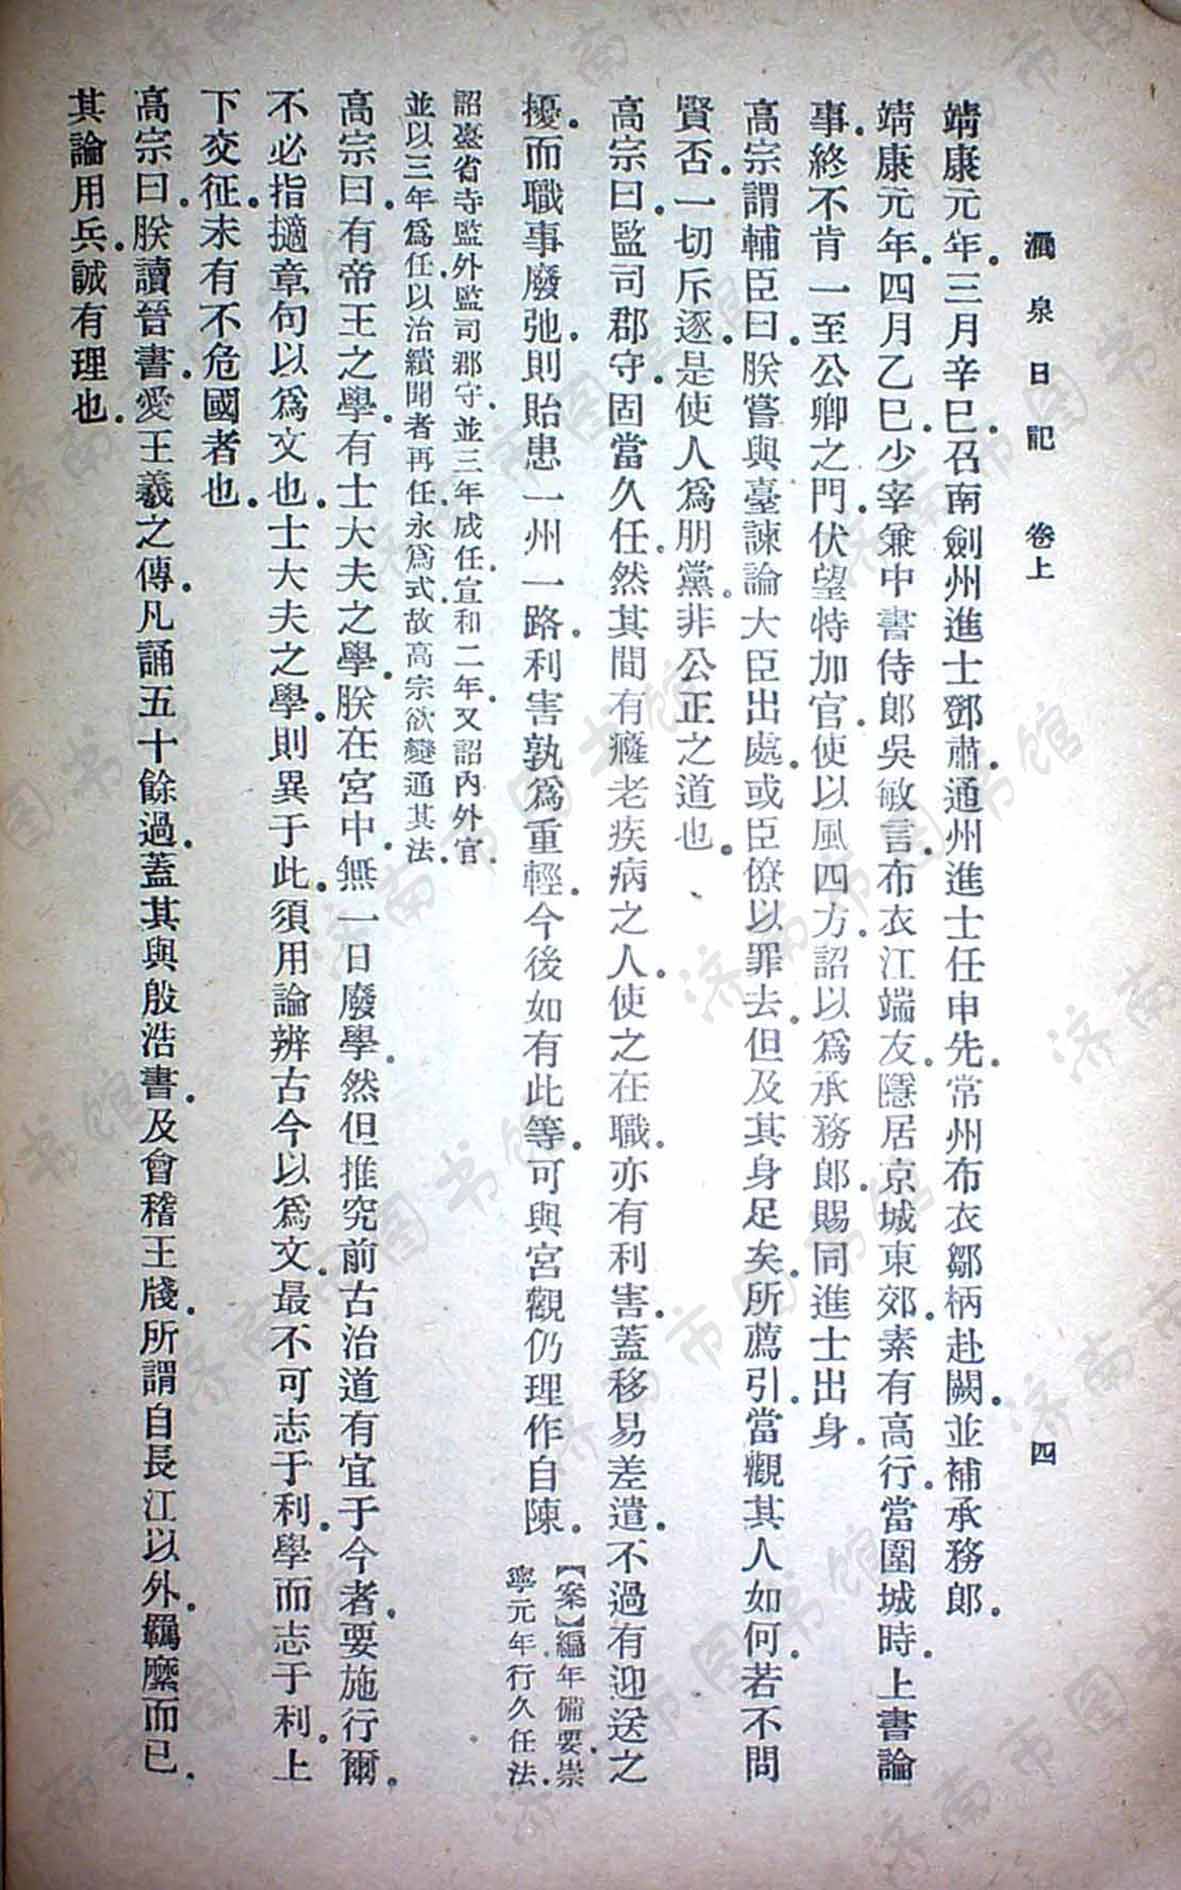 澗泉日記　卷上　四
靖康元年。三月辛巳。召南劍州進士鄧肅。通州進士任申先。常州布衣鄒柄赴闕。並補承務郎。
靖康元年。四月乙巳。少宰兼中書侍郎吳敏言。布衣江端友。隱居京城東郊。素有高行。當圍城時。上書論
事。終不肯一至公卿之門。伏望特加官。使以風四方。詔以爲承務郎。賜同進士出身。
高宗謂輔臣曰。朕嘗與臺諫論大臣出處。或臣僚以罪去。但及其身足矣。所薦引。當觀其人如何。若不問
賢否。一切斥逐。是使人爲朋黨。非公正之道也。
高宗曰。監司郡守。固當久任。然其間有癃老疾病之人。使之在職。亦有利害。蓋移易差遣。不過有迎送之
擾。而職事廢弛。則貽患一州一路。利害孰爲重輕。今後如有此等。可與宮觀。仍理作自陳。
【案】編年備要。崇
寧元年。行久任法。
詔臺省寺監。外監司郡守。並三年成任。宣和二年。又詔內外官。
並以三年爲任。以治績聞者再任。永爲式。故高宗欲變通其法。
高宗曰。有帝王之學。有士大夫之學。朕在宮中。無一日廢學。然但推究前古治道有宜于今者。要施行爾。
不必指擿章句以爲文也。士大夫之學。則異于此。須用論辨古今以爲文。最不可志于利。學而志于利。上
下交征。未有不危國者也。
高宗曰。朕讀晉書。愛王羲之傳。凡誦五十餘過。蓋其與殷浩書。及會稽王牋。所謂自長江以外。羈縻而已。
其論用兵。誠有理也。